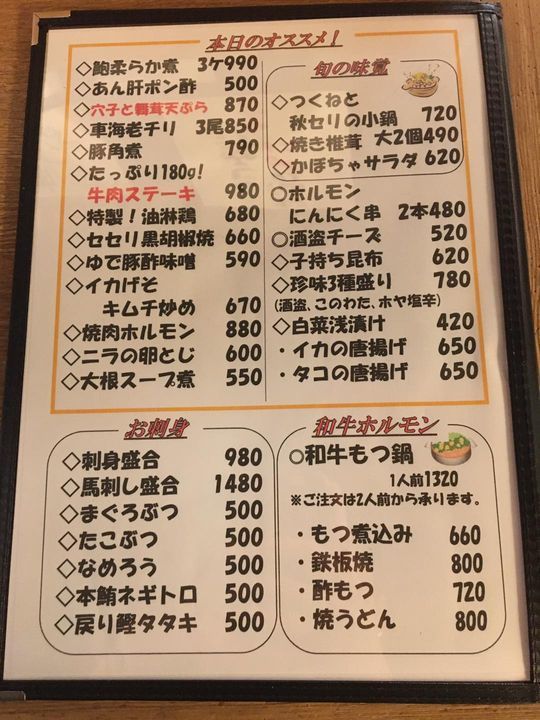 本日のオススメ!
◇鮑柔らか煮 3ケ990
◇あん肝ポン酢 500
◇穴子と舞茸天ぷら 870
◇車海老チリ 3尾850
◇豚角煮 790
◇たっぷり180g!
牛肉ステーキ 980
◇特製!油淋鶏 680
◇セセリ黒胡椒焼 660
◇ゆで豚酢味噌 590
◇イカげそ
キムチ炒め 670
◇焼肉ホルモン 880
◇ニラの卵とじ 600
◇大根スープ煮 550
旬の味覚
◇つくねと
秋セリの小鍋 720
◇焼き椎茸 大2個490
◇かぼちゃサラダ 620
○ホルモン
にんにく串 2本480
○酒盗チーズ 520
◇子持ち昆布 620
◇珍味3種盛り 780
(酒盗、このわた、ホヤ塩辛)
◇白菜浅漬け 420
・イカの唐揚げ 650
・タコの唐揚げ 650
お刺身
◇刺身盛合 980
◇馬刺し盛合 1480
◇まぐろぶつ 500
◇たこぶつ 500
◇なめろう 500
◇本鮪ネギトロ 500
◇戻り鰹タタキ 500
和牛ホルモン
○和牛もつ鍋
1人前1320
※ご注文は2人前から承ります。
・もつ煮込み 660
・鉄板焼 800
・酢もつ 720
・焼うどん 800